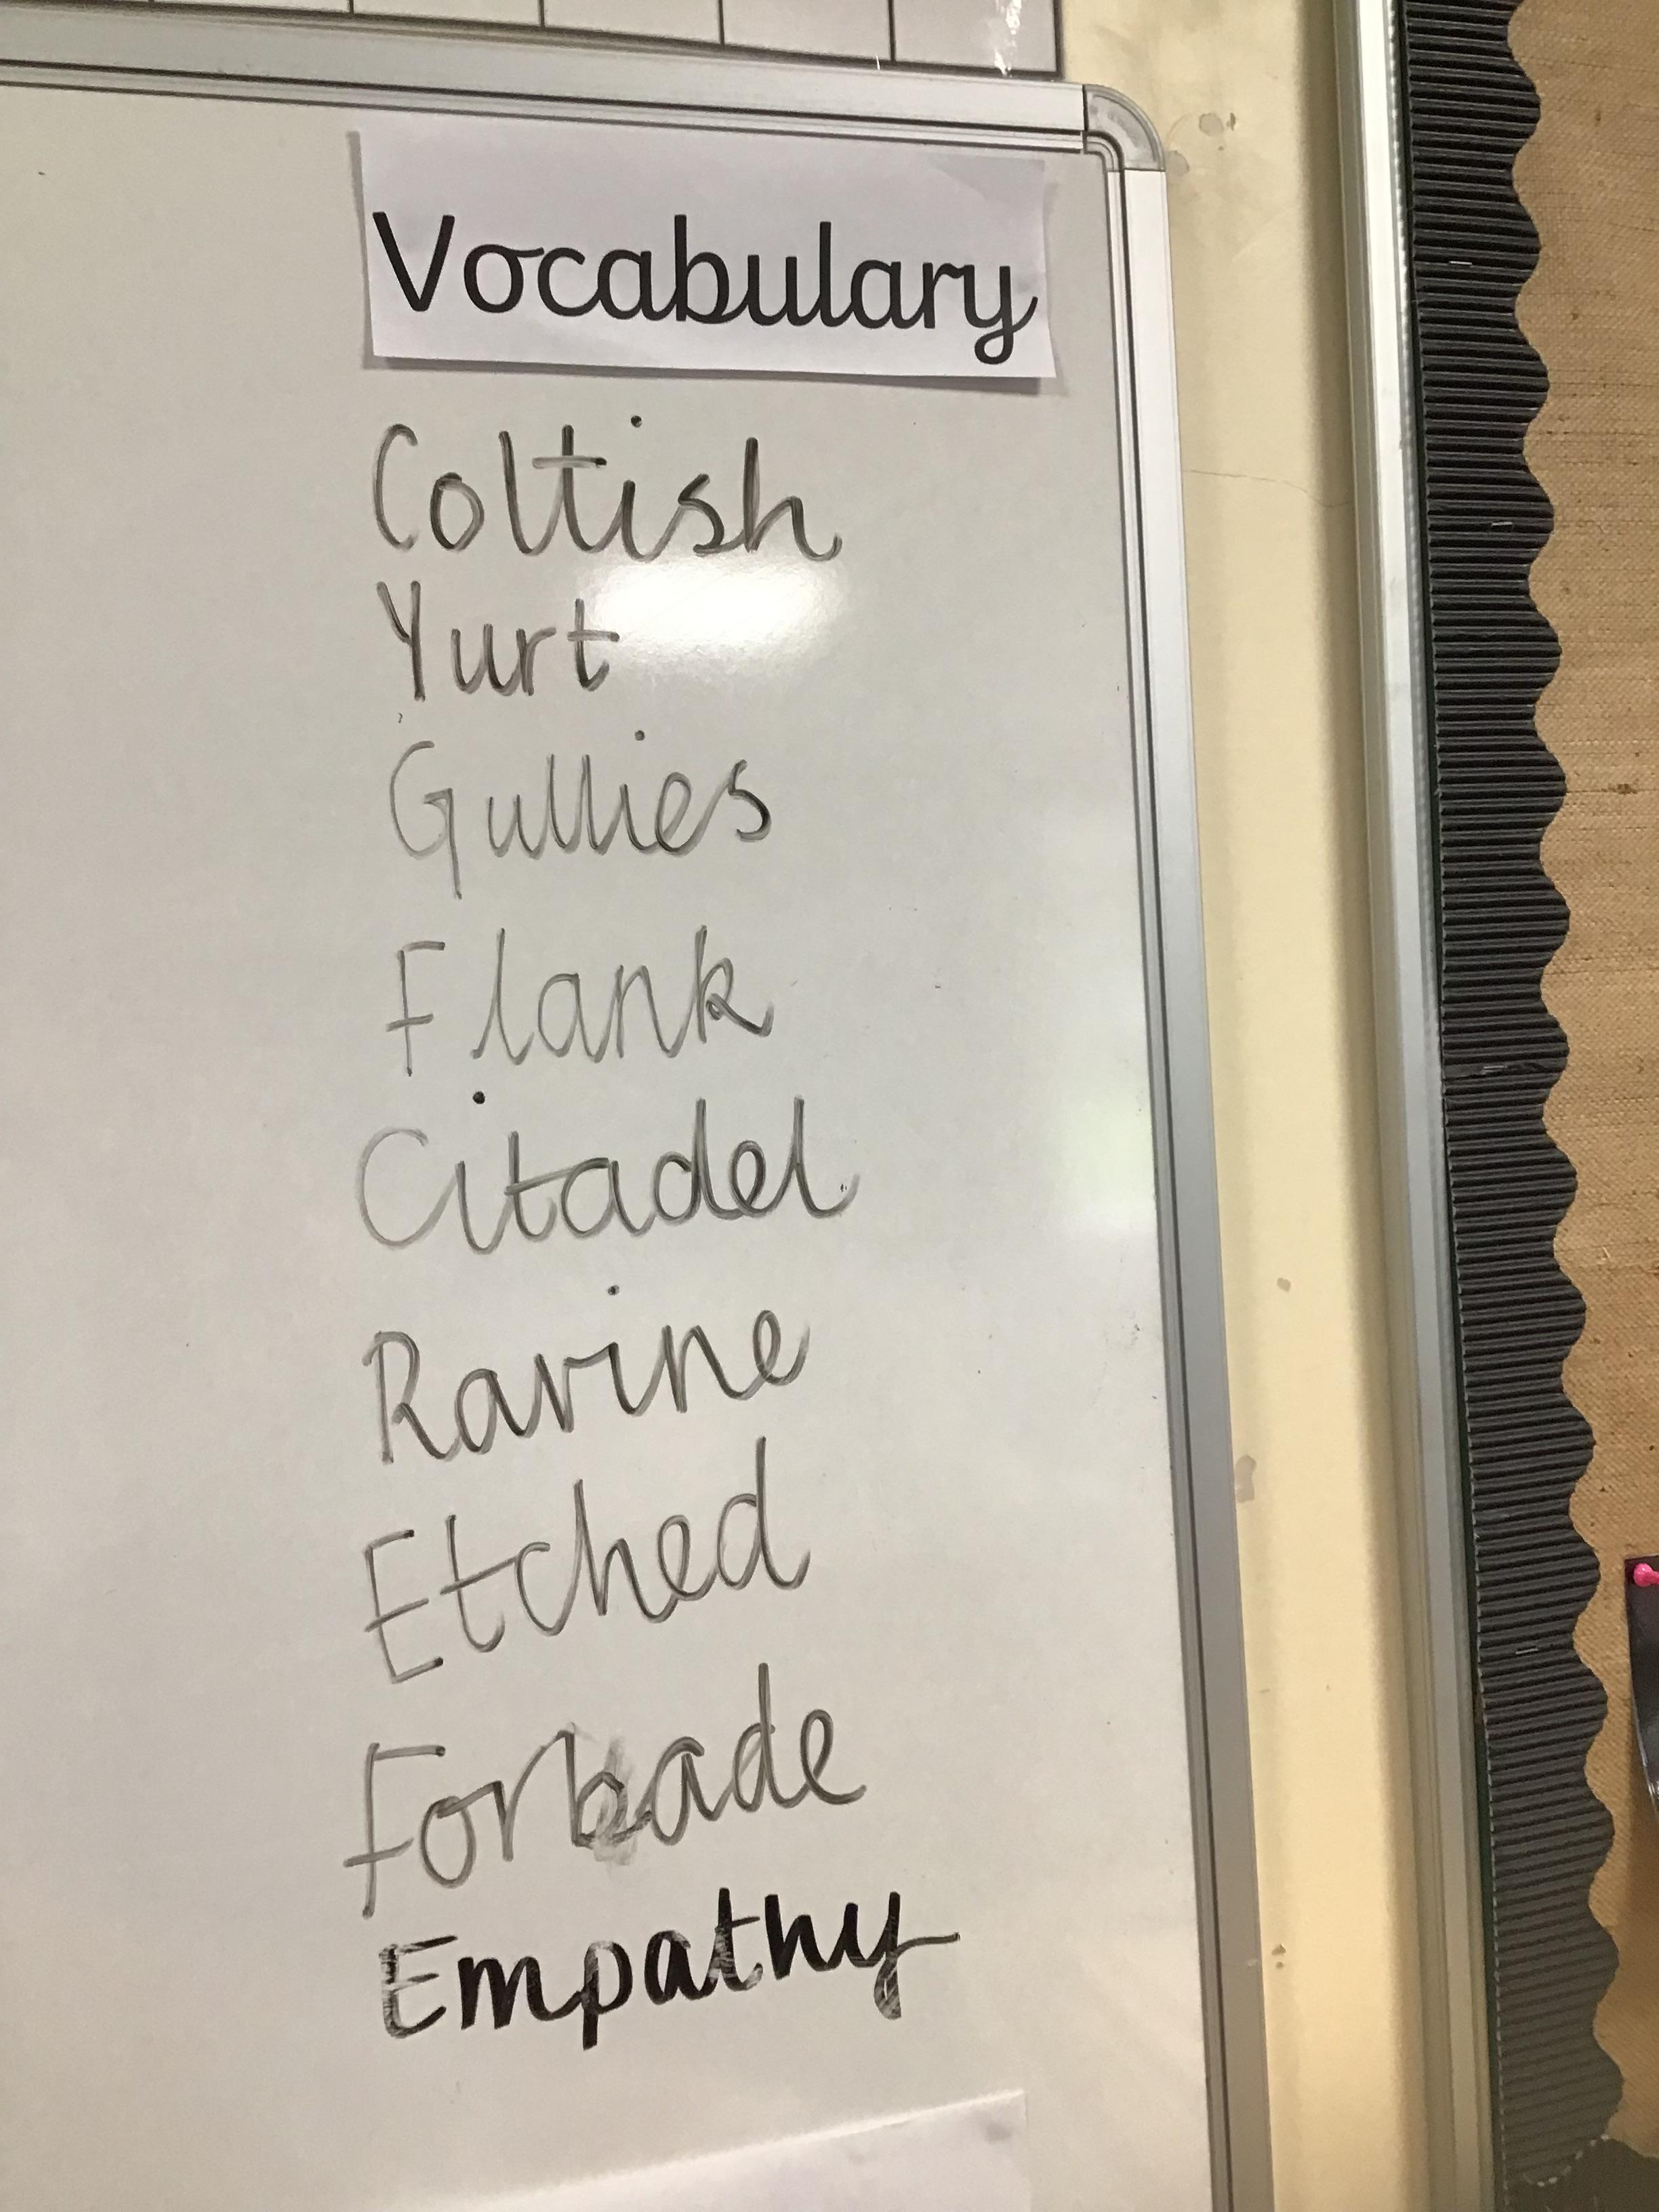 Vocabulary
Coltish
Yurt
Gullies
Flank
Citadel
Ravine
Etched
Forbade
Empathy